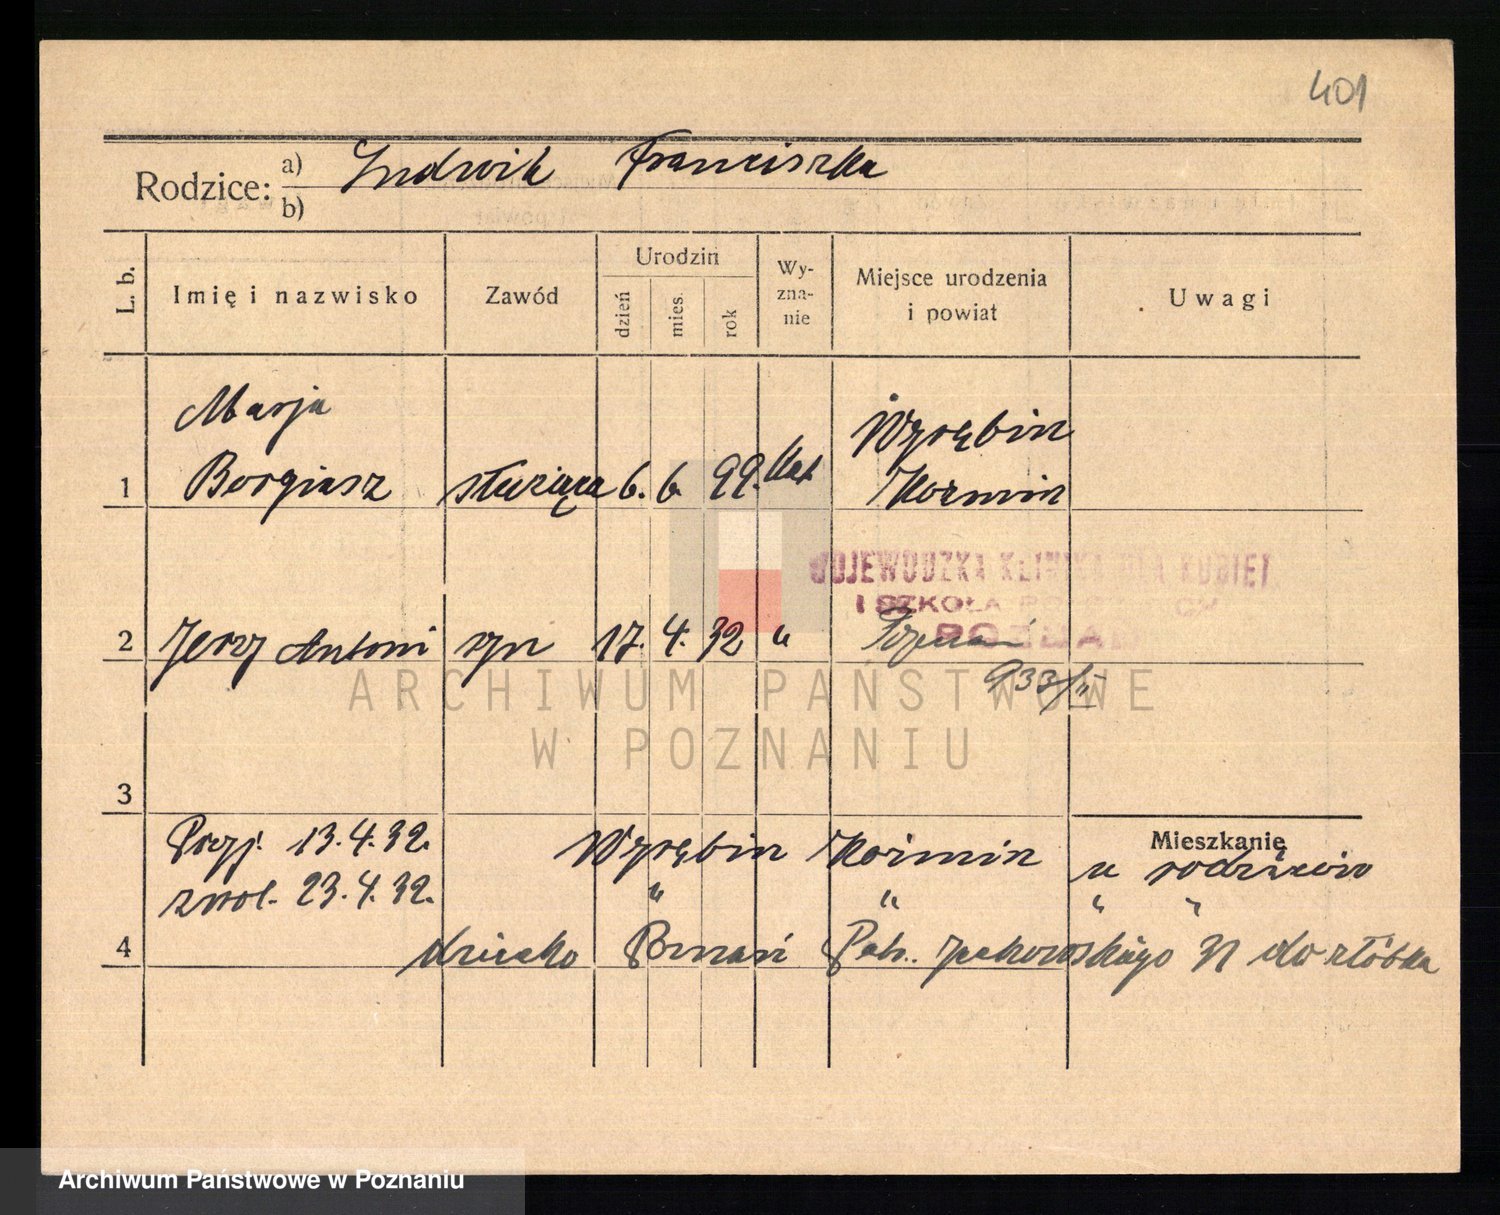 401
Rodzice: a) Ludwik Franciszka
b)
L. b. Imię i nazwisko Zawód Urodzin dzień mies. rok Wyznanie Miejsce urodzenia i powiat Uwagi
Marja Wyrębin
1 Borgiasz służąca 6. 6. 99. kat Koźmin
WOJEWÓDZKA KLINIKA DLA KOBIET
I SZKOŁA
POZNAŃ
2 Jerzy Antoni syn 17. 4. 32 " Poznań
933/II
ARCHIWUM PAŃSTWOWE
W POZNANIU
3
Mieszkanie
Przyj. 13.4.32. Wyrębin Koźmin u rodziców
zwol. 23.4.32. " " " "
4 dziecko Poznań Patr. Jackowskiego 31 do żłóbka
Archiwum Państwowe w Poznaniu